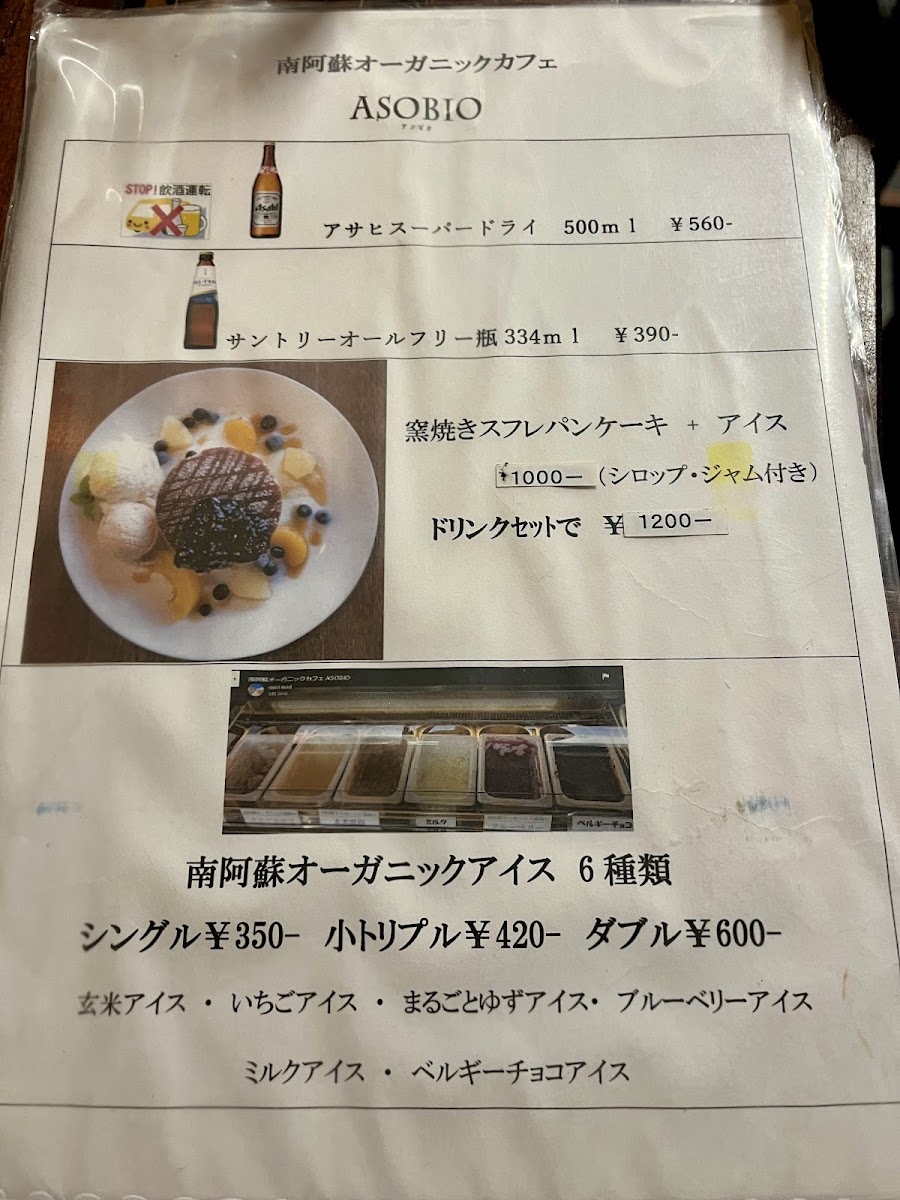 南阿蘇オーガニックカフェ
ASOBIO
アソビオ
STOP!飲酒運転
Asahi
アサヒスーパードライ 500ml ¥560-
サントリーオールフリー瓶334ml ¥390-
窯焼きスフレパンケーキ + アイス
¥1000ー(シロップ・ジャム付き)
ドリンクセットで ¥1200ー
南阿蘇オーガニックカフェ ASOBIO
ミルク
ブルーベリー
ベルギーチョコ
南阿蘇オーガニックアイス 6種類
シングル¥350- 小トリプル¥420- ダブル¥600-
玄米アイス・いちごアイス・まるごとゆずアイス・ブルーベリーアイス
ミルクアイス・ベルギーチョコアイス